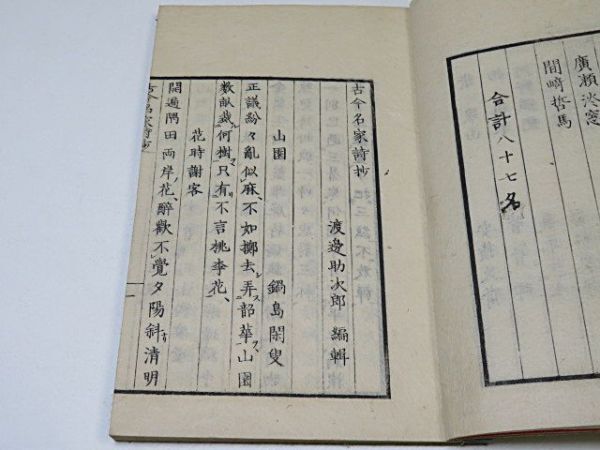 廣瀬淡窓
間﨑哲馬
合計八十七名
古今名家詩抄
渡邊助次郎 編輯
山園 鍋島閑叟
正議紛々亂似麻、不如擲去弄韶華、山園
数畝栽何樹、只有不言桃李花、
花時謝客
開遍隅田両岸花、醉歡不覺夕陽斜、清明
古今名家詩抄
一